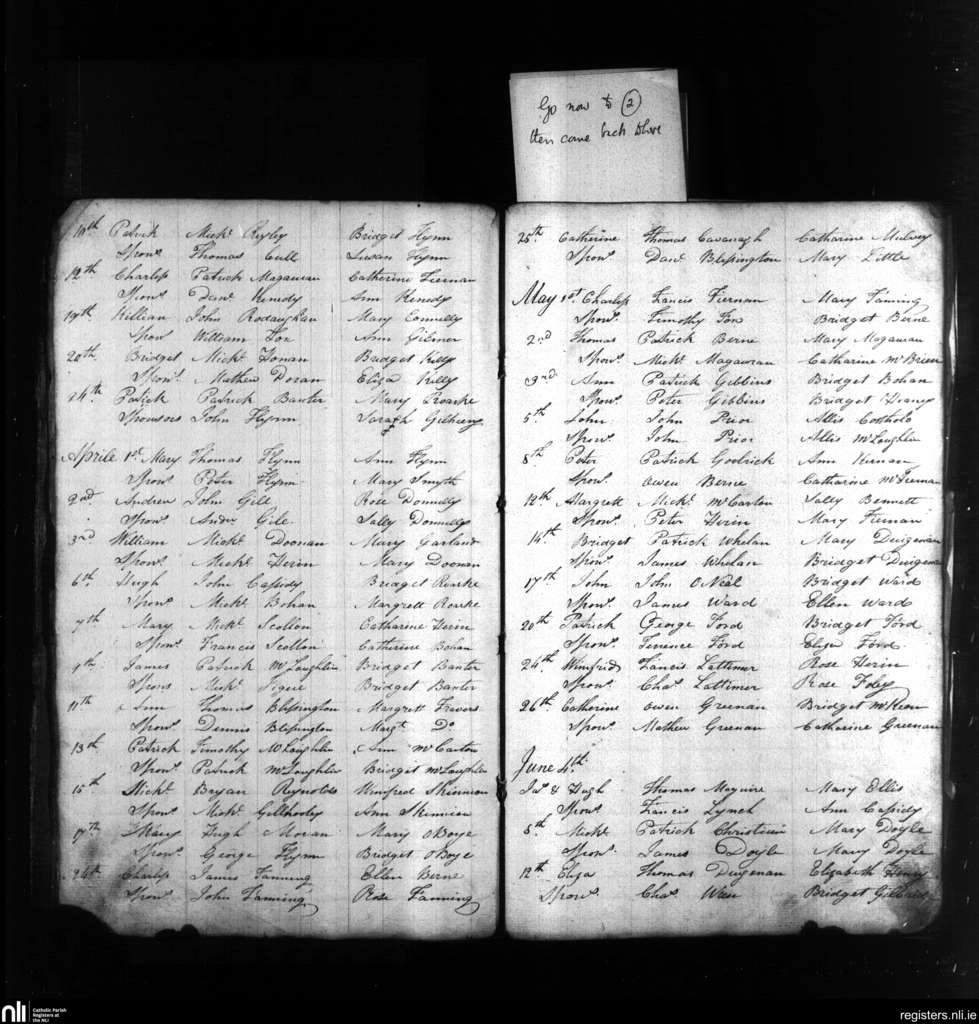 Go now to 2
then come back here
10th Patrick Mick. Reyley Bridget Flynn
Spons. Thomas Cull Susan Flynn
12th Charles Patrick Magauran Catherine Tiernan
Spons. Danl. Kenedy Ann Kenedy
19th Killian John Rodaughan Mary Connelly
Spons William Fox Ann Gilmer
20th Bridget Michl. Homan Bridget Killy
Spons. Mathew Doran Eliza Killy
24th Patick Patrick Banter Mary Roarke
Sponsors John Flynn Sarah
Aprile 1st Mary Thomas Flynn Ann Flynn
Spons. Peter Flynn Mary Smyth
2nd Andrew John Gile Rose Donnelly
Spons. Andw. Gile Sally Donnelly
3rd William Michl. Doonan Mary Garland
Spons. Michl. Herin Mary Doonan
6th Hugh John Cassedy Bridget Roarke
Spons. Michl. Bohan Margrett Roarke
7th Mary Michl. Scollon Catharine Herin
Spons. Francis Scollon Catherine Bohan
9th James Patrick McLoughlin Bridget Banter
Spons Michl. Bridget Banter
11th Ann Thomas Blessington Margrett Travors
Spons. Dennis Blessington Margt. Do.
13th Patrick Timothy McLoughlin Ann McCarton
Spons. Patrick McLoughlin Bridget McLoughlin
15th Michl. Bryan Reynolds Winifred Skinnion
Spons. Michl. Gilhooley Ann Skinnion
17th Mary Hugh Moran Mary OBoye
Spons. George Flynn Bridget OBoye
24th Charles James Fanning Ellen Berne
Spons. John Fanning Rose Fanning
25th Catherine Thomas Cavanagh Catharine Mulvey
Spons. Danl. Blessington Mary Little
May 1st Charles Francis Tiernan Mary Faning
Spons. Timothy Fox Bridget Berne
2nd Thomas Patrick Berne Mary Magauran
Spons. Michl. Magauran Catharine McBrien
3rd Ann Patrick Gibbins Bridget Bohan
Spons. Peter Gibbins Bridget
5th John John Prior Allis
Spons. John Prior Allis McLoughlin
8th Peter Patrick Goolrick Ann Kernan
Spons. Owen Berne Catharine McTiernan
12th Margrett Michl. McCarton Sally Bennett
Spons. Peter Herin Mary Tiernan
14th Bridget Patrick Whelan Mary Duigenan
Spons. James Whelan Bridget Duigenan
17th John John ONeal Bridget Ward
Spons. James Ward Ellen Ward
20th Patrick George Ford Bridget Ford
Spons. Terence Ford Eliza Ford
24th Winifred Francis Lattimer Rose Herin
Spons. Chas. Lattimer Rose Foley
26th Catherine Owen Greenan Bridget McKeon
Spons. Mathew Greenan Catharine Greenan
June 4th
Jas. & Hugh Thomas Maguire Mary Ellis
Spons. Francis Lynch Ann Cassidy
5th Michl. Patrick Christian Mary Doyle
Spons. James Doyle Mary Doyle
12th Eliza Thomas Duigenan Elizabeth Henry
Spons. Chas. Bridget
nli Catholic Parish
Registers at
the NLI
registers.nli.ie